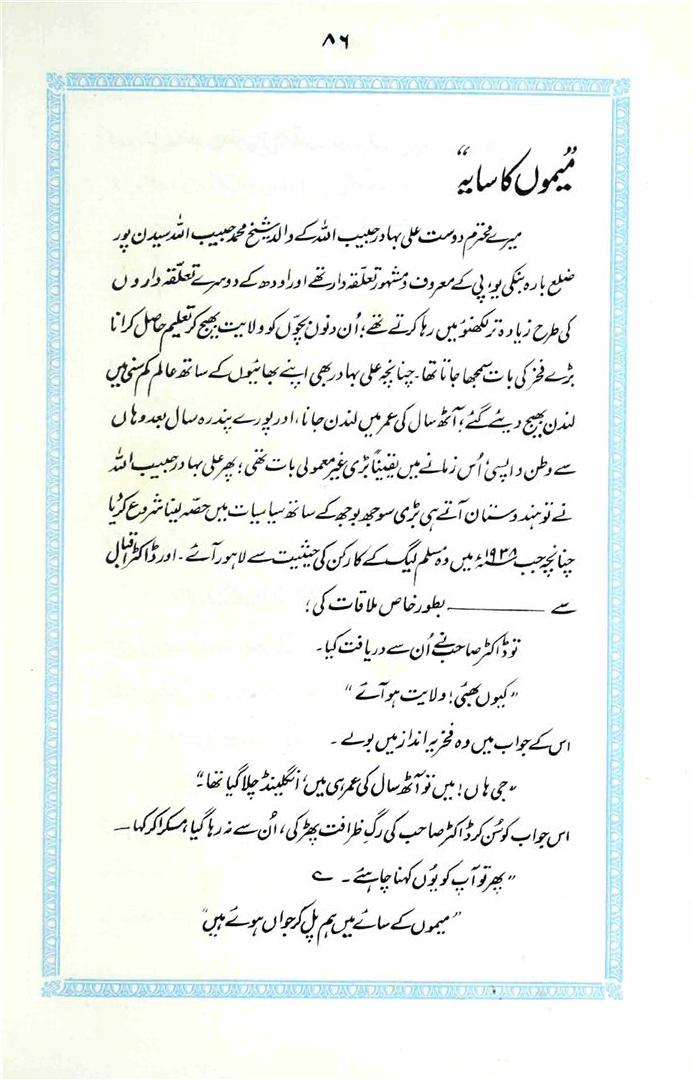 ۸۶
”میموں کا سایہ“
میرے محترم دوست علی بہادر حبیب اللہ کے والد شیخ محمد حبیب اللہ سیدن پور
ضلع بارہ بنکی یو، پی کے معروف و مشہور تعلقہ دار تھے اور اودھ کے دوسرے تعلّقہ داروں
کی طرح زیادہ تر لکھنؤ میں رہا کرتے تھے؛ اُن دنوں بچّوں کو ولایت بھیج کر تعلیم حاصل کرانا
بڑے فخر کی بات سمجھا جاتا تھا۔ چنانچہ علی بہادر بھی اپنے بھائیوں کے ساتھ عالم کم سنی میں
لندن بھیج دیئے گئے؛ آٹھ سال کی عمر میں لندن جانا، اور پورے پندرہ سال بعد وہاں
سے وطن واپسی اُس زمانے میں یقیناً بڑی غیر معمولی بات تھی؛ پھر علی بہادر حبیب اللہ
نے تو ہندوستان آتے ہی بڑی سوجھ بوجھ کے ساتھ سیاسیات میں حصّہ لینا شروع کر دیا
چنانچہ جب ۱۹۳۸ء میں وہ مسلم لیگ کے کارکن کی حیثیت سے لاہور آئے۔ اور ڈاکٹر اقبال
سے ــــــــــــ بطور خاص ملاقات کی؛
تو ڈاکٹر صاحب نے اُن سے دریافت کیا۔
”کیوں بھئی؛ ولایت ہو آئے“
اس کے جواب میں وہ فخریہ انداز میں بولے۔
”جی ہاں! میں تو آٹھ سال کی عمر ہی میں، انگلینڈ چلا گیا تھا۔“
اس جواب کو سُن کر ڈاکٹر صاحب کی رگِ ظرافت پھڑکی، اُن سے نہ رہا گیا مسکرا کر کہا ــ
”پھر تو آپ کو یُوں کہنا چاہیئے۔ ؎
”میموں کے سائے میں ہم پل کر جواں ہوئے ہیں“